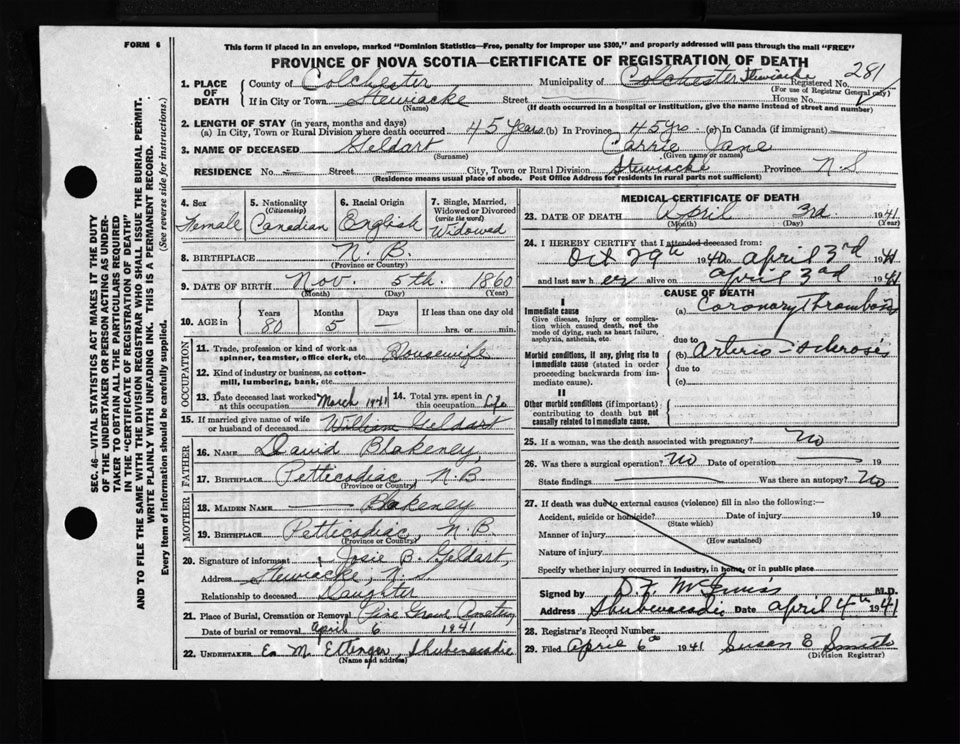 FORM 6
This form if placed in an envelope, marked "Dominion Statistics—Free, penalty for improper use $300," and properly addressed will pass through the mail "FREE"
PROVINCE OF NOVA SCOTIA—CERTIFICATE OF REGISTRATION OF DEATH
1. PLACE OF DEATH
County of Colchester Municipality of Colchester Stewiacke Registered No. 281
(For use of Registrar General only)
If in City or Town Stewiacke Street House No.
(Name) (If death occurred in a hospital or institution, give the name instead of street and number)
2. LENGTH OF STAY (in years, months and days)
(a) In City, Town or Rural Division where death occurred 45 years (b) In Province 45 yrs. (c) In Canada (if immigrant)
3. NAME OF DECEASED Geldart Carrie Jane
(Surname) (Given name or names)
RESIDENCE No. — Street — City, Town or Rural Division Stewiacke Province N.S
(Residence means usual place of abode. Post Office Address for residents in rural parts not sufficient)
4. Sex Female
5. Nationality (Citizenship) Canadian
6. Racial Origin English
7. Single, Married, Widowed or Divorced (write the word) Widowed
8. BIRTHPLACE N.B.
(Province or Country)
9. DATE OF BIRTH Nov. 5th. 1860
(Month) (Day) (Year)
10. AGE in Years 80 Months 5 Days — If less than one day old hrs. or min.
OCCUPATION
11. Trade, profession or kind of work as spinner, teamster, office clerk, etc. Housewife
12. Kind of industry or business, as cotton-mill, lumbering, bank, etc.
13. Date deceased last worked at this occupation March 1941 14. Total yrs. spent in this occupation Life
15. If married give name of wife or husband of deceased William Geldart
FATHER
16. NAME David Blakeney
17. BIRTHPLACE Petticodiac, N.B
(Province or Country)
MOTHER
18. MAIDEN NAME — Blakeney
19. BIRTHPLACE Petticodiac, N.B.
(Province or Country)
20. Signature of informant Josie B. Geldart,
Address Stewiacke, N.S
Relationship to deceased Daughter
21. Place of Burial, Cremation or Removal Pine Grove Cemetery
Date of burial or removal April 6 1941
22. UNDERTAKER M. Ettinger, Shubenacadie
(Name and address)
MEDICAL CERTIFICATE OF DEATH
23. DATE OF DEATH April 3rd 1941
(Month) (Day) (Year)
24. I HEREBY CERTIFY that I attended deceased from:
Oct 29th 1940 to April 3rd 1941
and last saw her alive on April 3rd 1941
CAUSE OF DEATH
I
Immediate cause
Give disease, injury or complication which caused death, not the mode of dying, such as heart failure, asphyxia, asthenia, etc.
(a) Coronary Thrombosis
due to
Morbid conditions, if any, giving rise to immediate cause (stated in order proceeding backwards from immediate cause).
(b) Arterio-sclerosis
due to
(c)
II
Other morbid conditions (if important) contributing to death but not causally related to immediate cause.
25. If a woman, was the death associated with pregnancy? No
26. Was there a surgical operation? No Date of operation — 19
State findings — Was there an autopsy? No
27. If death was due to external causes (violence) fill in also the following:—
Accident, suicide or homicide? Date of injury 19
(State which)
Manner of injury
(How sustained)
Nature of injury
Specify whether injury occurred in industry, in home, or in public place
Signed by D.F. McInnis M.D.
Address Shubenacadie Date April 4th 1941
28. Registrar's Record Number
29. Filed April 6th 1941 Susan E Smith
(Division Registrar)
SEC. 46—VITAL STATISTICS ACT MAKES IT THE DUTY
OF THE UNDERTAKER OR PERSON ACTING AS UNDER-
TAKER TO OBTAIN ALL THE PARTICULARS REQUIRED
IN THE "CERTIFICATE OF REGISTRATION OF DEATH"
AND TO FILE THE SAME WITH THE DIVISION REGISTRAR WHO SHALL ISSUE THE BURIAL PERMIT.
WRITE PLAINLY WITH UNFADING INK. THIS IS A PERMANENT RECORD.
Every item of information should be carefully supplied. (See reverse side for instructions.)